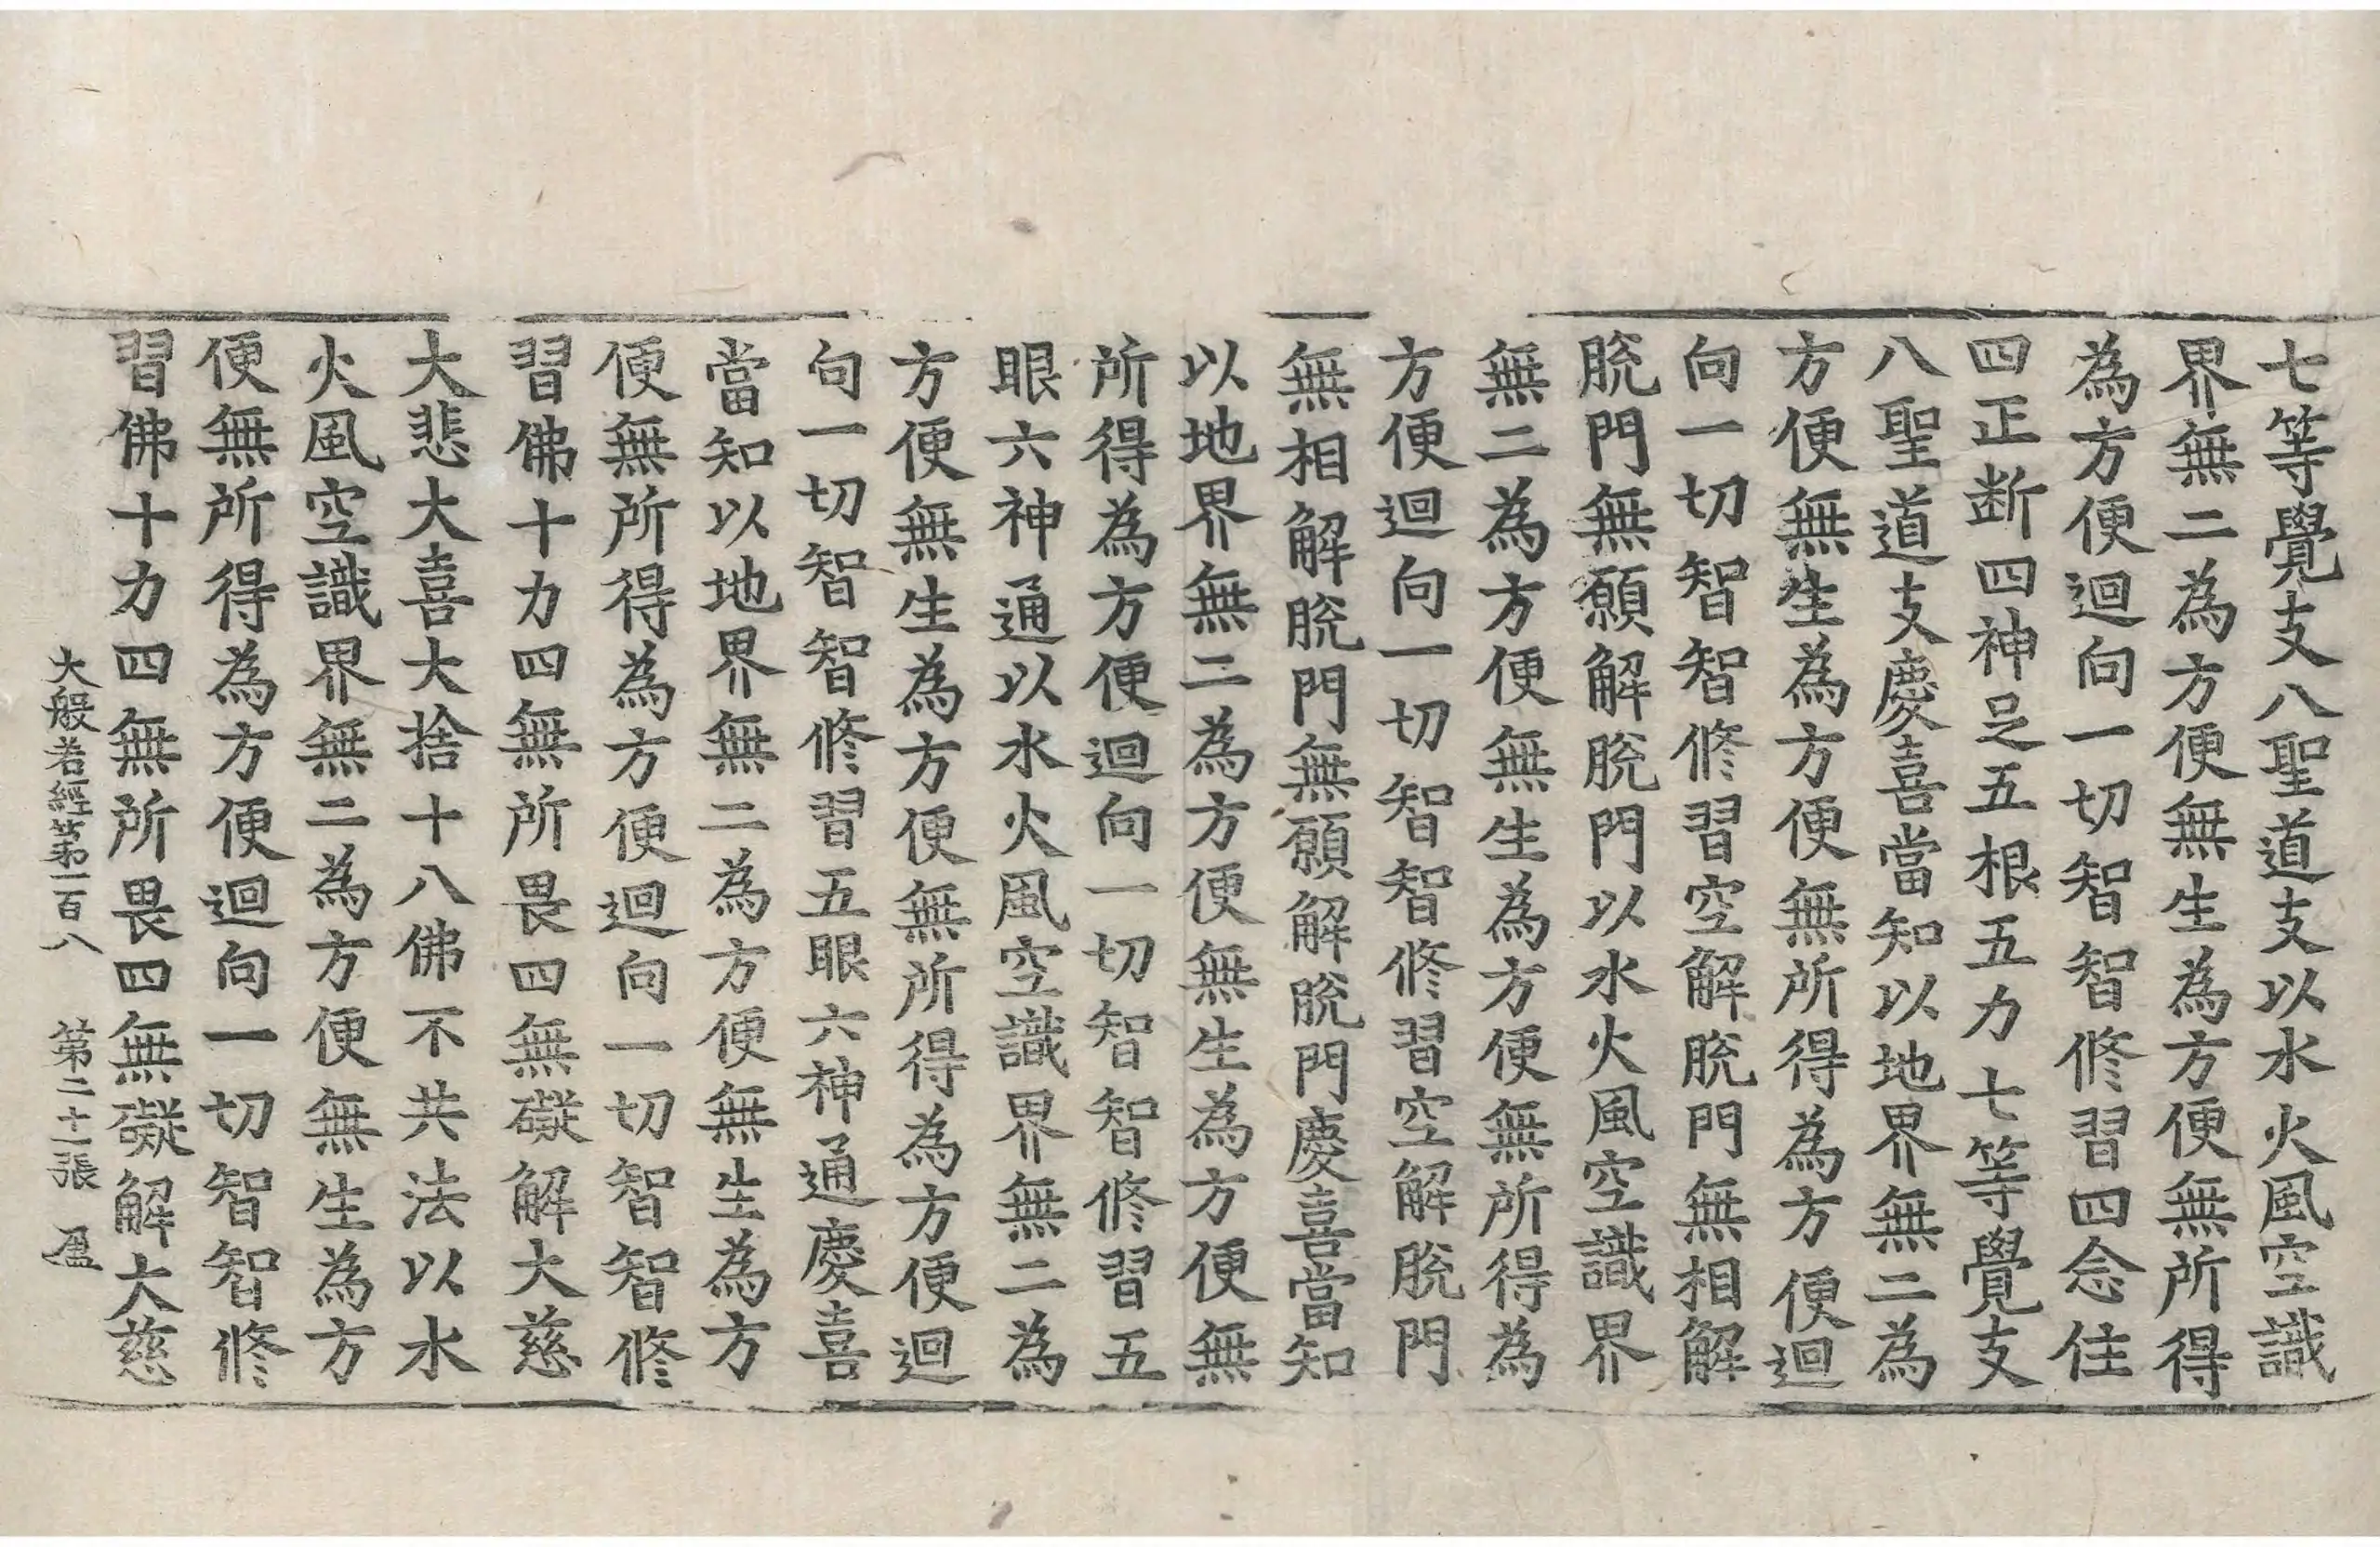 七等覺支八聖道支以水火風空識
界無二為方便無生為方便無所得
為方便迴向一切智智修習四念住
四正断四神足五根五力七等覺支
八聖道支慶喜當知以地界無二為
方便無生為方便無所得為方便迴
向一切智智修習空解脫門無相解
脫門無願解脫門以水火風空識界
無二為方便無生為方便無所得為
方便迴向一切智智修習空解脫門
無相解脫門無願解脫門慶喜當知
以地界無二為方便無生為方便無
所得為方便迴向一切智智修習五
眼六神通以水火風空識界無二為
方便無生為方便無所得為方便迴
向一切智智修習五眼六神通慶喜
當知以地界無二為方便無生為方
便無所得為方便迴向一切智智修
習佛十力四無所畏四無礙解大慈
大悲大喜大捨十八佛不共法以水
火風空識界無二為方便無生為方
便無所得為方便迴向一切智智修
習佛十力四無所畏四無礙解大慈
大般若經第一百八 第二十一張 盈